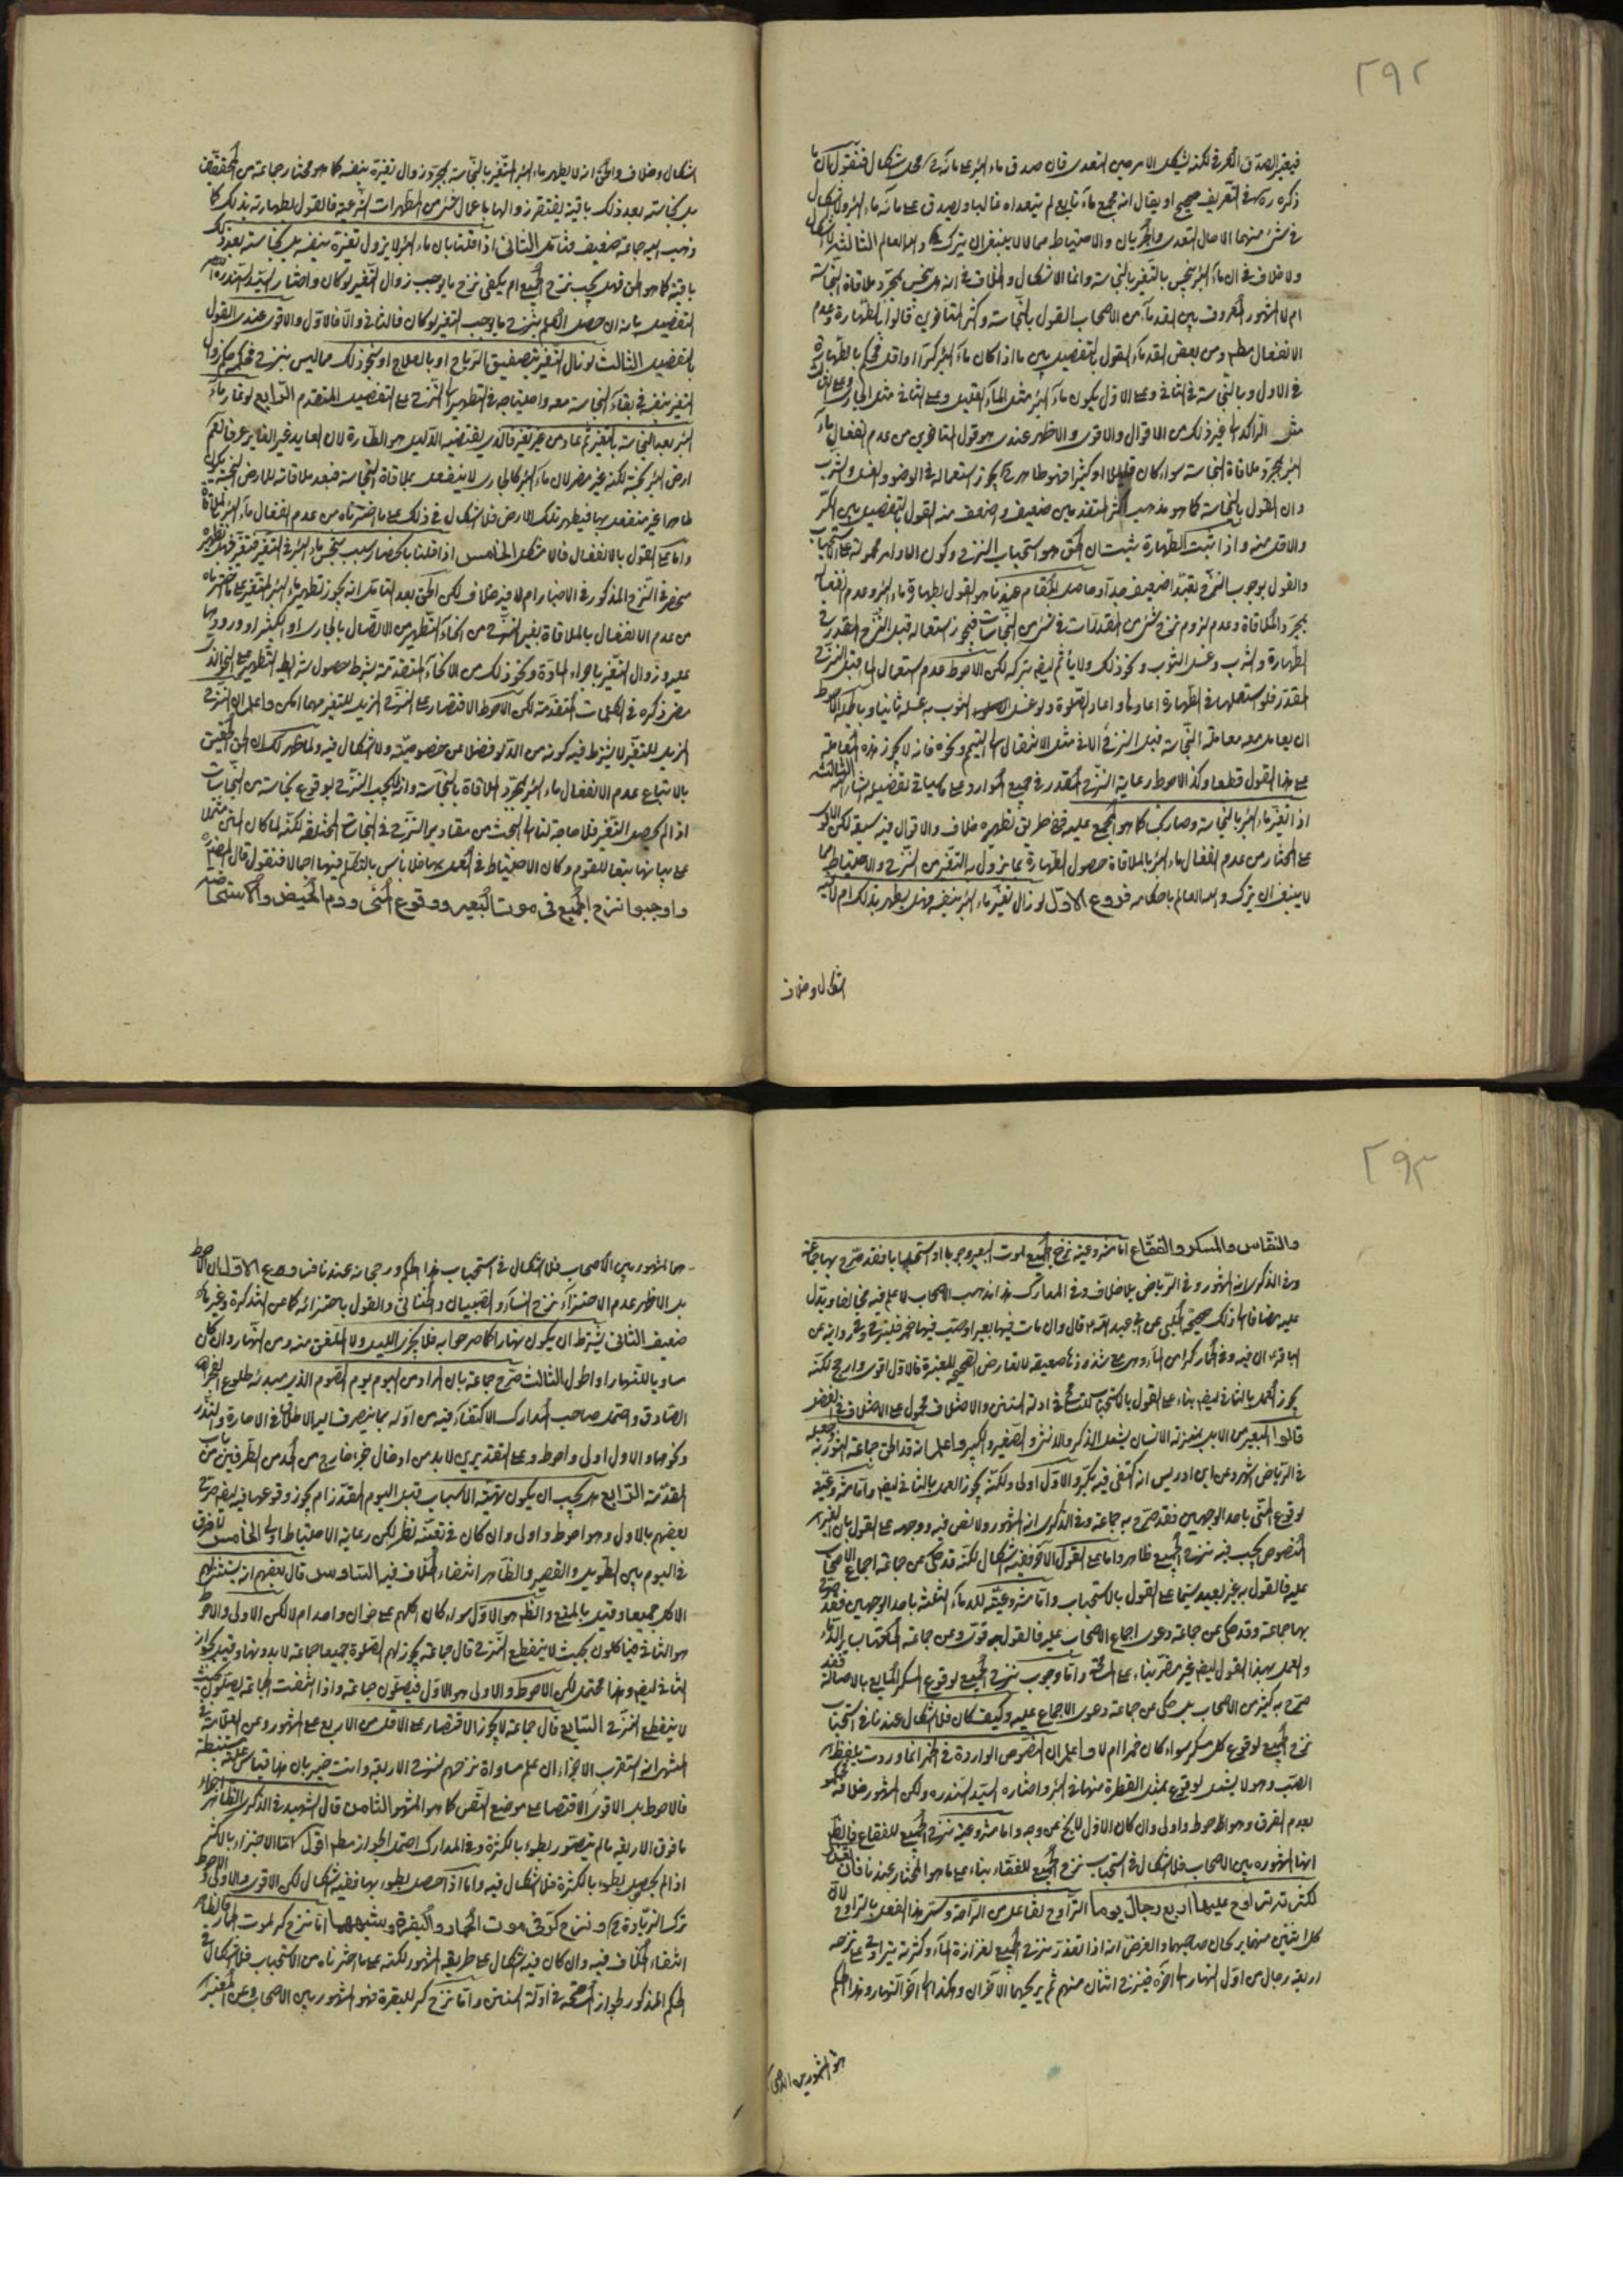 ٢٩٢
فيعتبر الصدق العرفي لكنه يشكل الامر حين التعدى فان صدق ماء البئر على مائه في محل اشكال فنقول بان ما
ذكره ره في التعريف صحيح او يقال انه مجمع ماء نابع لم يتعداه غالبا و لصدق على مائه ماء البئر ولا اشكال
في شئ منهما الا حال التعدى والجريان والاحتياط مما لا ينبغى ان يترك والله العالم الثالث لا اشكال
ولا خلاف في ان ماء البئر ينجس بالتغير بالنجاسة وانما الاشكال والخلاف في انه هل ينجس بمجرد ملاقاة النجاسة
ام لا المشهور المعروف بين القدماء من الاصحاب القول بالنجاسة واكثر المتاخرين قالوا بالطهارة وعدم
الانفعال مطلقا وعن بعض القدماء القول بالتفصيل بين ما اذا كان ماء البئر كرا او اقل فيحكم بالطهارة
في الاول وبالنجاسة في الثاني وعلى الاول يكون ماء البئر مثل الماء القليل وعلى الثاني مثل الجارى
مثل الراكد الى غير ذلك من الاقوال والاقوى والاظهر عندى هو قول المتاخرين من عدم انفعال ماء
البئر بمجرد ملاقاة النجاسة سواء كان قليلا او كثيرا فهو طاهر يجوز استعماله في الوضوء والغسل والشرب
وان القول بالنجاسة كما هو مذهب اكثر المتقدمين ضعيف واضعف منه القول بالتفصيل بين الكر
والاقل منه واذا ثبت الطهارة يثبت ان الحق هو استحباب النزح وكون الاوامر محمولة على الاستحباب
والقول بوجوب النزح تعبدا ضعيف جدا وحاصل المقام عندنا هو القول بطهارة ماء البئر وعدم انفعاله
بمجرد الملاقاة وعدم لزوم نزح شئ من المقدرات في شئ من النجاسات فيجوز استعماله قبل النزح المقدر في
الطهارة والشرب وغسل الثوب ونحو ذلك ولا ياثم ايضا بتركه لكن الاحوط عدم استعمال الماء قبل النزح
المقدر فلو استعملها في الطهارة اعادها واعاد الصلوة ولو غسل الثوب به غسله ثانيا وبالجملة الاحوط
ان يعامل معه معاملة النجاسة قبل النزح الا في مثل الانتقال الى التيمم ونحوه فانه لا يجوز هذه المعاملة
على هذا القول قطعا وكذا الاحوط رعاية النزح المقدر في جميع الموارد على ما سياتى تفصيله انشاء الله الثالث
اذا تغير ماء البئر بالنجاسة وصار نجسا كما هو المجمع عليه ففى طريق تطهيره خلاف والاقوال فيه سبعة لكن الاقوى
على المختار من عدم انفعال ماء البئر بالملاقاة حصول الطهارة بما يزول به التغير من النزح والاحتياط مما
لا ينبغى ان يترك والله العالم باحكامه فروع الاول لو زال تغير ماء البئر بنفسه فهل يطهر بذلك ام لا فيه
اشكال وخلاف
اشكال وخلاف والحق انه لا يطهر ماء البئر المتغير بالنجاسة بمجرد زوال تغيره بنفسه كما هو مختار جماعة من المحققين
بل نجاسته بعد ذلك باقية يفتقر زوالها باعمال شئ من المطهرات الشرعية فالقول بطهارته بذلك كما
ذهب اليه جماعة ضعيف فتامل الثانى اذا قلنا بان ماء البئر لا يزول تغيره بنفسه بل نجاسته بعد ذلك
باقية كما هو الحق فهل يجب نزح الجميع ام يكفى نزح ما يوجب زوال التغير لو كان واختار السيد السند ره
التفصيل بانه ان حصل العلم بنزح ما يوجب التغير لو كان فالثانى والا فالاول والاقوى عندى القول
بالتفصيل الثالث لو زال التغير بتصفيق الرياح او بالعلاج او بنحو ذلك مما ليس بنزح فحكمه حكم زوال
التغير بنفسه في بقاء النجاسة معه واحتياجه في التطهير الى النزح على التفصيل المتقدم الرابع لو غار ماء
البئر بعد النجاسة بالتغير ثم عاد من غير تغير فالذى يقتضيه الدليل هو الطهارة لان العايد غير الغاير عرفا نعم
ارض البئر نجسة لكنه غير مضر لان ماء البئر كالجارى لا ينفعل بملاقاة النجاسة فبعد ملاقاته للارض النجسة يكون
طاهرا غير منفعل بها فيطهر تلك الارض فلا اشكال في ذلك على ما اخترناه من عدم انفعال ماء البئر بالملاقاة
واما على القول بالانفعال فالا مشكل الخامس اذا قلنا بانحصار سبب تنجس ماء البئر في التغير فتغير فهل تطهيره
منحصر في النزح المذكور في الاخبار ام لا فيه خلاف لكن الحق بعد التامل انه يجوز تطهير ماء البئر المتغير على ما اخترناه
من عدم الانفعال بالملاقاة بغير النزح من انحاء التطهير من الاتصال بالجارى او الكثير او ورودهما
عليه وزوال التغير باجراء المادة ونحو ذلك من الانحاء المتقدمة بشرط حصول شرايط التطهير على النحو الذى
مضى ذكره في الكلمات المتقدمة لكن الاحوط الاقتصار على النزح المزيل للتغير مهما امكن واعلم ان النزح
المزيل للتغير لا يشترط فيه كونه من الدلو فضلا عن خصوصيته ولا اشكال فيه ولما ظهر لك ان الحق الحقيق
بالاتباع عدم الانفعال ماء البئر بمجرد الملاقاة بالنجاسة وانه لا يجب النزح بوقوع نجاسة من النجاسات
اذا لم يحصل التغير فلا حاجة لنا الى البحث من مقادير النزح في النجاسات المختلفة لكنه لما كان البناء مثلا
على بيانها تبعا للقوم وكان الاحتياط في العمل بها فلا باس بالتكلم فيها اجمالا فنقول قال المصنف ره
واوجبوا نزح الجميع في موت البعير ووقوع المنى ودم الحيض والاستحاضة
٢٩٣
والنفاس والمسكر والفقاع اما مشروعية نزح الجميع لموت البعير وجوبا او استحبابا فقد صرح بها جماعة
وفى الذكرى انه المشهور وفى الرياض بلا خلاف وفى المدارك هذا مذهب الاصحاب لا اعلم فيه مخالفا ويدل
عليه مضافا الى ذلك صحيحة الحلبى عن ابى عبد الله ع قال وان مات فيها بعير او صب فيها خمر فلينزح وفى رواية عن
الباقر ع ان فيه وفى الحمار كرا من الماء وهى مع شذوذها ضعيفة لا تعارض الصحيحة المعتبرة فالاول اقوى وارجح لكنه
يجوز العمل بالثانى ايضا بناء على القول بالاستحباب للتسامح في ادلة السنن والاختلاف محمول على الاختلاف في الفضل
قالوا البعير من الابل بمنزلة الانسان يشمل الذكر والانثى والصغير والكبير واعلم انه قد الحق جماعة الثور به وجعله
في الرياض اشهر وعن ابن ادريس انه اكتفى فيه بكر والاول اولى ولكنه يجوز العمل بالثانى ايضا واما مشروعيته
لوقوع المنى باحد الوجهين فقد صرح به جماعة وفى الذكرى انه المشهور ولا نص فيه ووجهه على القول بان الغير
المنصوص يجب فيه نزح الجميع ظاهر واما على القول الاخر ففيه اشكال لكنه قد حكى عن جماعة اجماع الاصحاب
عليه فالقول به غير بعيد سيما على القول بالاستحباب واما مشروعيته للدماء الثلثة باحد الوجهين فقد صرح
بها جماعة وقد حكى عن جماعة دعوى اجماع الاصحاب عليه فالقول به قوى وعن جماعة الحكم بساير الدماء
والعمل بهذا القول ايضا غير مضر بناء على المسامحة واما وجوب نزح الجميع لوقوع المسكر المايع بالاصالة فقد
صرح به كثير من الاصحاب بل حكى عن جماعة دعوى الاجماع عليه وكيف كان فلا اشكال عندنا في استحباب
نزح الجميع لوقوع كل مسكر سواء كان خمرا ام لا واعلم ان النصوص الواردة في الخمر انما وردت بلفظ
الصب وهو لا يشمل لوقوع مثل القطرة منها في البئر واختاره السيد السند ره ولكن المشهور خلافه
بعدم الفرق وهو احوط واولى وان كان الاول لا يخ عن وجه واما مشروعية نزح الجميع للفقاع فالظاهر
انها المشهورة بين الاصحاب فلا اشكال في استحباب نزح الجميع للفقاع بناء على ما هو المختار عندنا فان
لكثرته تراوح عليها اربع رجال يوما التراوح تفاعل من الراحة وسمى هذا الفعل بالتراوح لان
كل اثنين منهما يريحان صاحبهما والغرض انه اذا تعذر نزح الجميع لغزارة الماء وكثرته يتراوح على نزحه
اربعة رجال من اول النهار الى اخره فينزح اثنان منهم ثم يريحهما الآخران وهكذا الى آخر النهار وهذا الحكم
هو المشهور بين الاصحاب
هو المشهور بين الاصحاب فلا اشكال في استحباب هذا الحكم ورجحانه عندنا فنا فروع الاول الاحوط
بل الاظهر عدم الاجتزاء بنزح النساء والصبيان والخناثى والقول باجتزائه كما عن التذكرة وغيرها
ضعيف الثانى يشترط ان يكون نهارا كما صرحوا به فلا يجزى الليل ولا الملفق منه ومن النهار وان كان
مساويا للنهار او اطول الثالث صرح جماعة بان المراد من اليوم يوم الصوم الذى مبدئه طلوع الفجر
الصادق واحتمل صاحب المدارك الاكتفاء فيه من اوله بما ينصرف اليه الاطلاق في الاجارة والنذر
ونحوهما والاول اولى واحوط وعلى التقديرين لابد من ادخال جزء خارج من الحد من الطرفين من باب
المقدمة الرابع هل يجب ان يكون تهيئة الاسباب قبل اليوم المقدر ام يجوز وقوعها فيه ايضا صرح
بعضهم بالاول وهو احوط واولى وان كان في تعينه نظر لكن رعاية الاحتياط اولى الخامس لا فرق
في اليوم بين الطويل والقصير والظاهر انتفاء الخلاف فيه السادس قال بعضهم انه يستثنى لهم
الاكل جميعا وقيل بالمنع والظ هو الاول سواء كان اكلهم على خوان واحد ام لا لكن الاولى والاحوط
هو الثانى فياكلون بحيث لا ينقطع النزح قال جماعة يجوز لهم الصلوة جميعا جماعة لا بدونها وقيل بجواز
الثانى ايضا وهذا محتمل لكن الاحوط والاولى هو الاول فيصلون جماعة واذا انتفت الجماعة يصلون بحيث
لا ينقطع النزح السابع قال جماعة لا يجوز الاقتصار على الاقل من الاربع على المشهور وعن العلامة في
المنتهى انه استقرب الاجزاء ان علم مساواة نزحهم لنزح الاربعة وانت خبير بان هذا قياس علته مستنبطة
فالاحوط بل الاقوى الاقتصار على موضع النص كما هو المشهور الثامن قال الشهيد في الذكرى الظاهر اجزاء
ما فوق الاربعة ما لم يتصور بطوء بالكثرة وفى المدارك احتمل الجواز مطلقا اقول اما الاجتزاء بالاكثر
اذا لم يحصل بطوء بالكثرة فلا اشكال فيه واما اذا حصل بطوء بها ففيه اشكال لكن الاقوى والاولى والاحوط
ترك الزيادة ونزح كر في موت الحمار والبقرة وشبهها اما نزح كر لموت الحمار فالظاهر
انتفاء الخلاف فيه وان كان فيه اشكال على طريقة المشهور لكنه على ما اخترناه من الاستحباب فلا اشكال في
الحكم المذكور لجواز المسامحة في ادلة السنن واما نزح كر للبقرة فهو المشهور بين الاصحاب وعن المعتبر